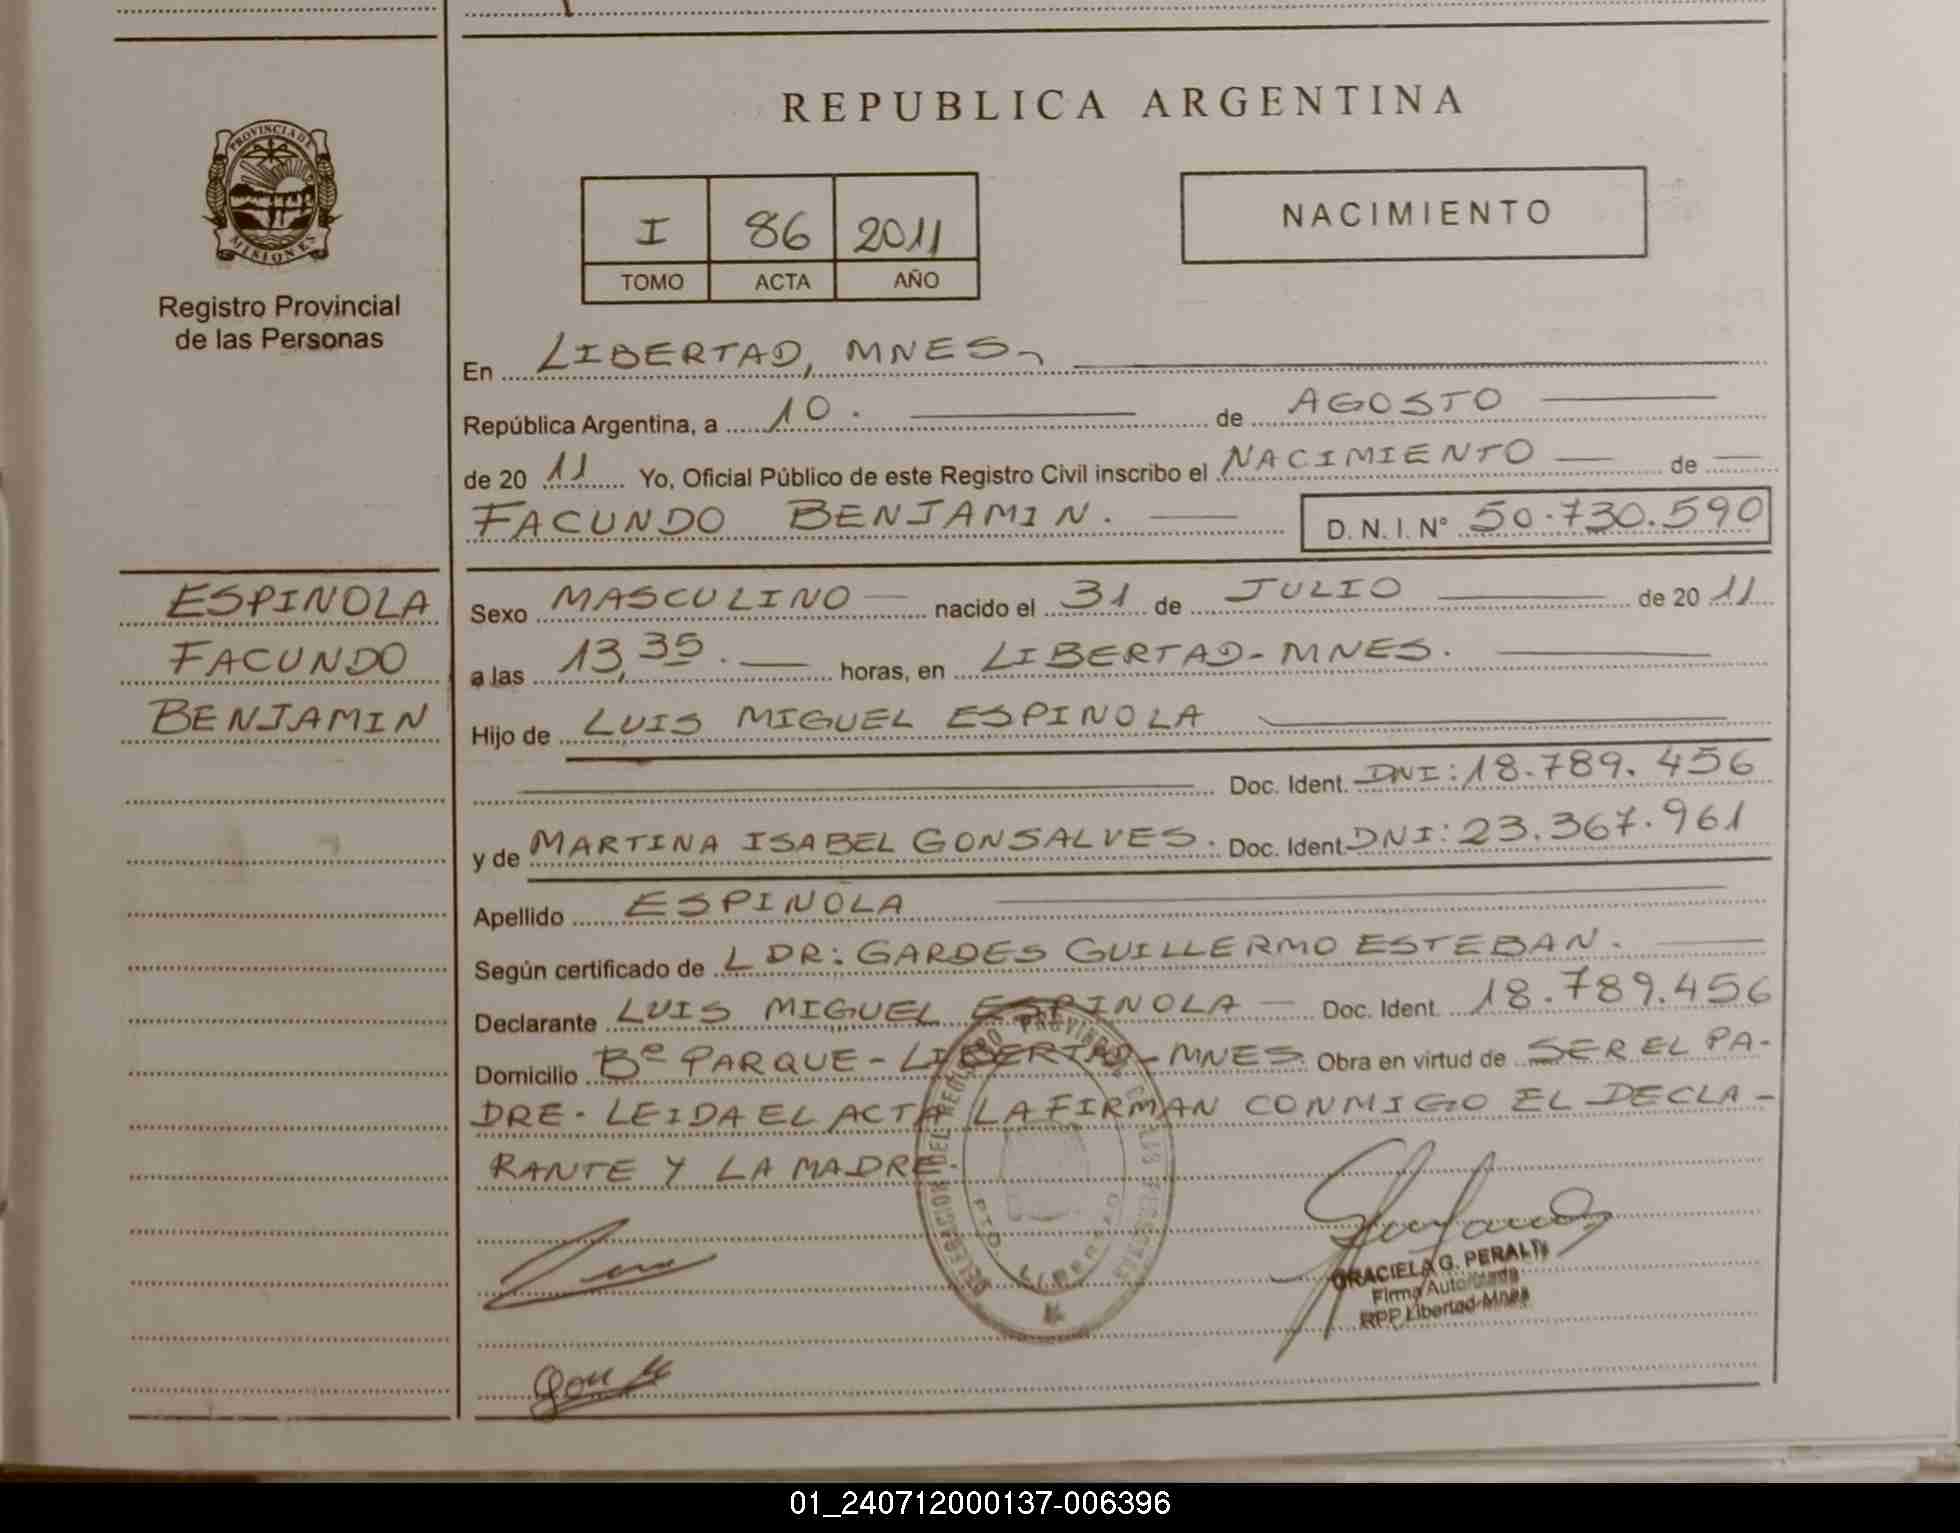 REPUBLICA ARGENTINA
PROVINCIA DE
MISIONES
Registro Provincial
de las Personas
I 86 2011
TOMO ACTA AÑO
NACIMIENTO
En LIBERTAD, MNES.
República Argentina, a 10. de AGOSTO
de 20 11 Yo, Oficial Público de este Registro Civil inscribo el NACIMIENTO de
FACUNDO BENJAMIN. D. N. I. N° 50.730.590
ESPINOLA
FACUNDO
BENJAMIN
Sexo MASCULINO nacido el 31 de JULIO de 20 11
a las 13,35. horas, en LIBERTAD-MNES.
Hijo de LUIS MIGUEL ESPINOLA
Doc. Ident. DNI: 18.789.456
y de MARTINA ISABEL GONSALVES. Doc. Ident. DNI: 23.367.961
Apellido ESPINOLA
Según certificado de L DR: GARDES GUILLERMO ESTEBAN.
Declarante LUIS MIGUEL ESPINOLA Doc. Ident. 18.789.456
Domicilio Bº PARQUE - LIBERTAD - MNES. Obra en virtud de SER EL PA-
DRE - LEIDA EL ACTA LA FIRMAN CONMIGO EL DECLA-
RANTE Y LA MADRE.
DELEGACION DEL REGISTRO PROVINCIAL DE LAS PERSONAS
PTO. LIBERTAD
GRACIELA G. PERALTA
Firma Autorizada
RPP Libertad-Mnes
01_240712000137-006396